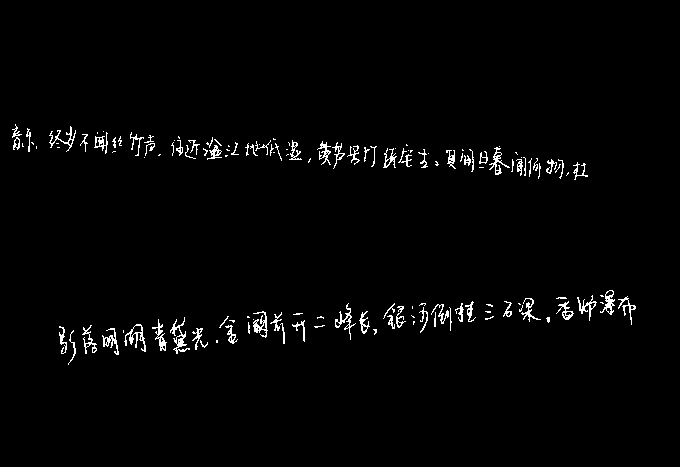 音乐,终岁不闻丝竹声.住近湓江地低湿,黄芦苦竹绕宅生。其间旦暮闻何物,杜
影落明湖青黛光.金阙前开二峰长,银河倒挂三石梁。香炉瀑布